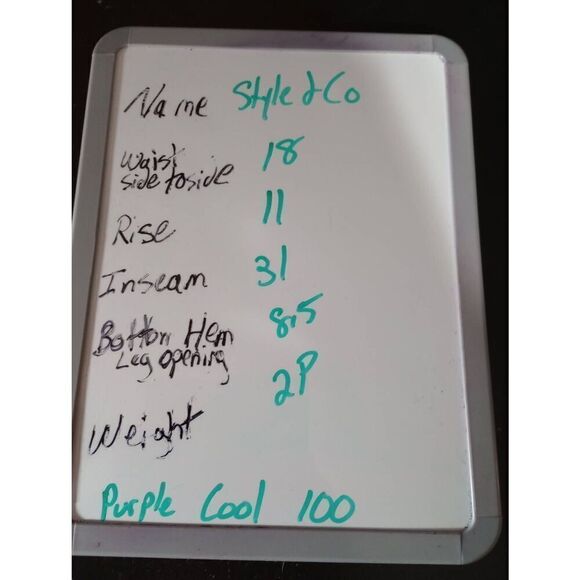 Name Style & Co
Waist 18
side to side
Rise 11
Inseam 31
Bottom Hem 8.5
Leg opening
Weight 2P
Purple Cool 100